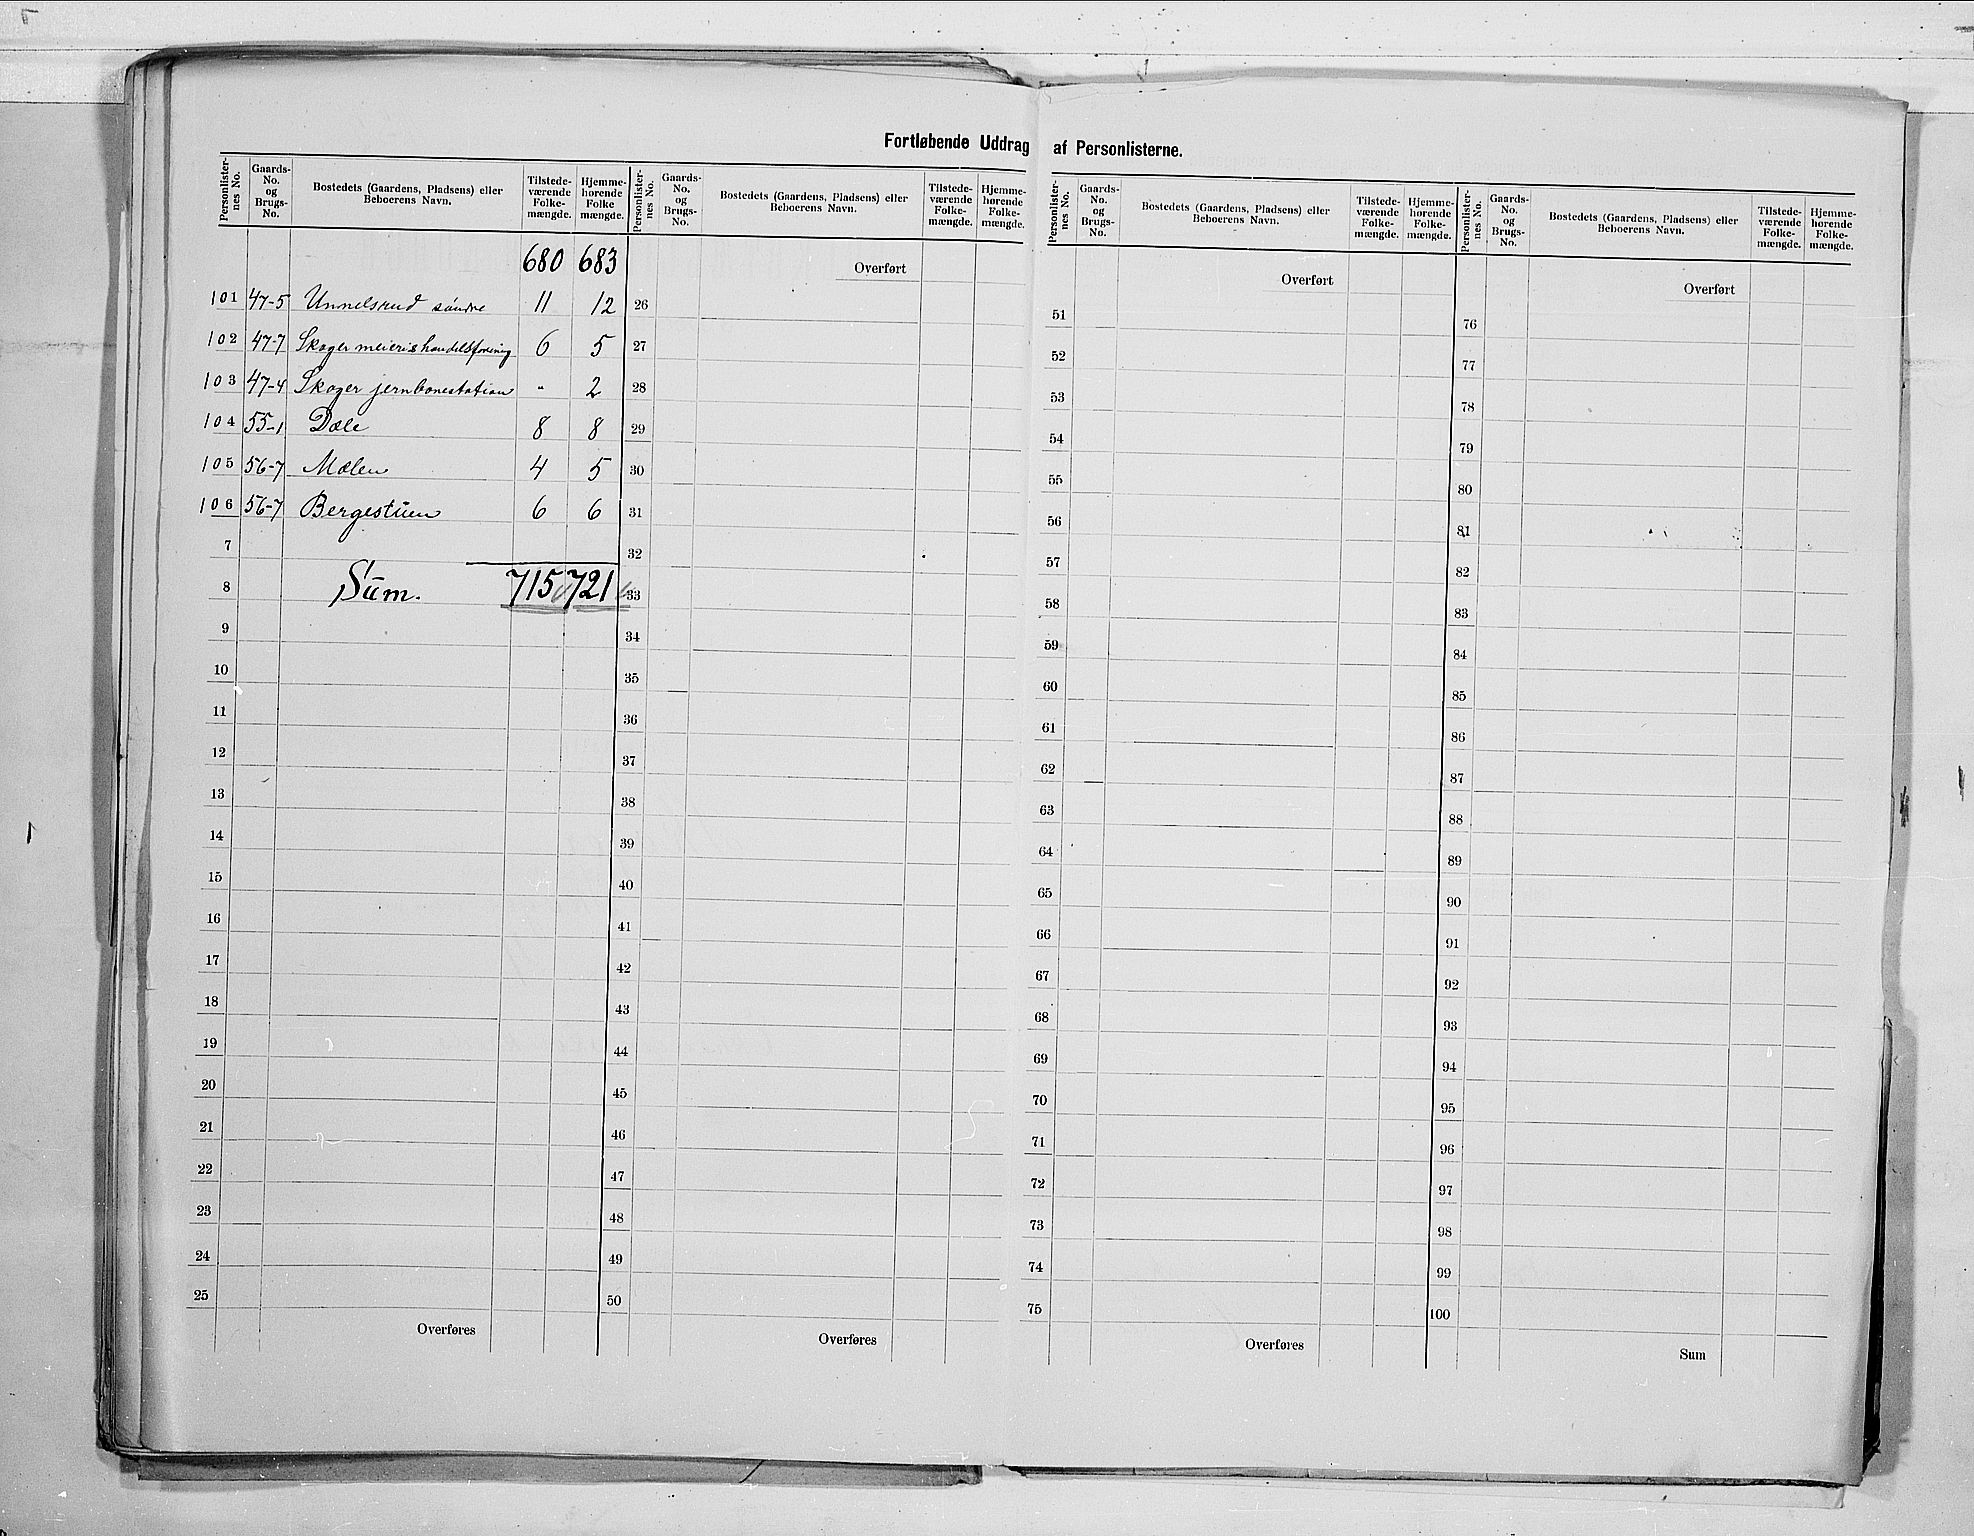 Fortløbende Uddrag af Personlisterne.
Personlister-nes No. | Gaards-No. og Brugs-No. | Bostedets (Gaardens, Pladsens) eller Beboerens Navn. | Tilstede-værende Folke-mængde. | Hjemme-hørende Folke mængde.
680 683
101 47-5 Unnelsrud søndre 11 12
102 47-7 Skoger meieris handelsforening 6 5
103 47-4 Skoger jernbanestation " 2
104 55-1 Dæle 8 8
105 56-7 Mælen 4 5
106 56-7 Bergestuen 6 6
7
8 Sum. 715 721
9
10
11
12
13
14
15
16
17
18
19
20
21
22
23
24
25
Overføres
Personlister-nes No. | Gaards-No. og Brugs-No. | Bostedets (Gaardens, Pladsens) eller Beboerens Navn. | Tilstede-værende Folke-mængde. | Hjemme-hørende Folke-mængde.
Overført
26
27
28
29
30
31
32
33
34
35
36
37
38
39
40
41
42
43
44
45
46
47
48
49
50
Overføres
Personlister-nes No. | Gaards-No. og Brugs-No. | Bostedets (Gaardens, Pladsens) eller Beboerens Navn. | Tilstede-værende Folke-mængde. | Hjemme-hørende Folke-mængde.
Overført
51
52
53
54
55
56
57
58
59
60
61
62
63
64
65
66
67
68
69
70
71
72
73
74
75
Overføres
Personlister-nes No. | Gaards-No. og Brugs-No. | Bostedets (Gaardens, Pladsens) eller Beboerens Navn. | Tilstede-værende Folke-mængde. | Hjemme-hørende Folke-mængde.
Overført
76
77
78
79
80
81
82
83
84
85
86
87
88
89
90
91
92
93
94
95
96
97
98
99
100
Sum